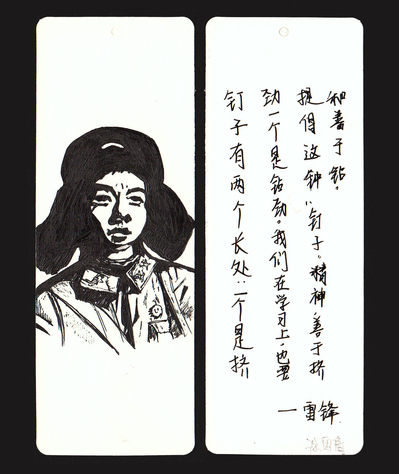 钉子有两个长处:一个是挤
劲一个是钻劲。我们在学习上,也要
提倡这种"钉子"精神,善于挤
和善于钻。
—雷锋